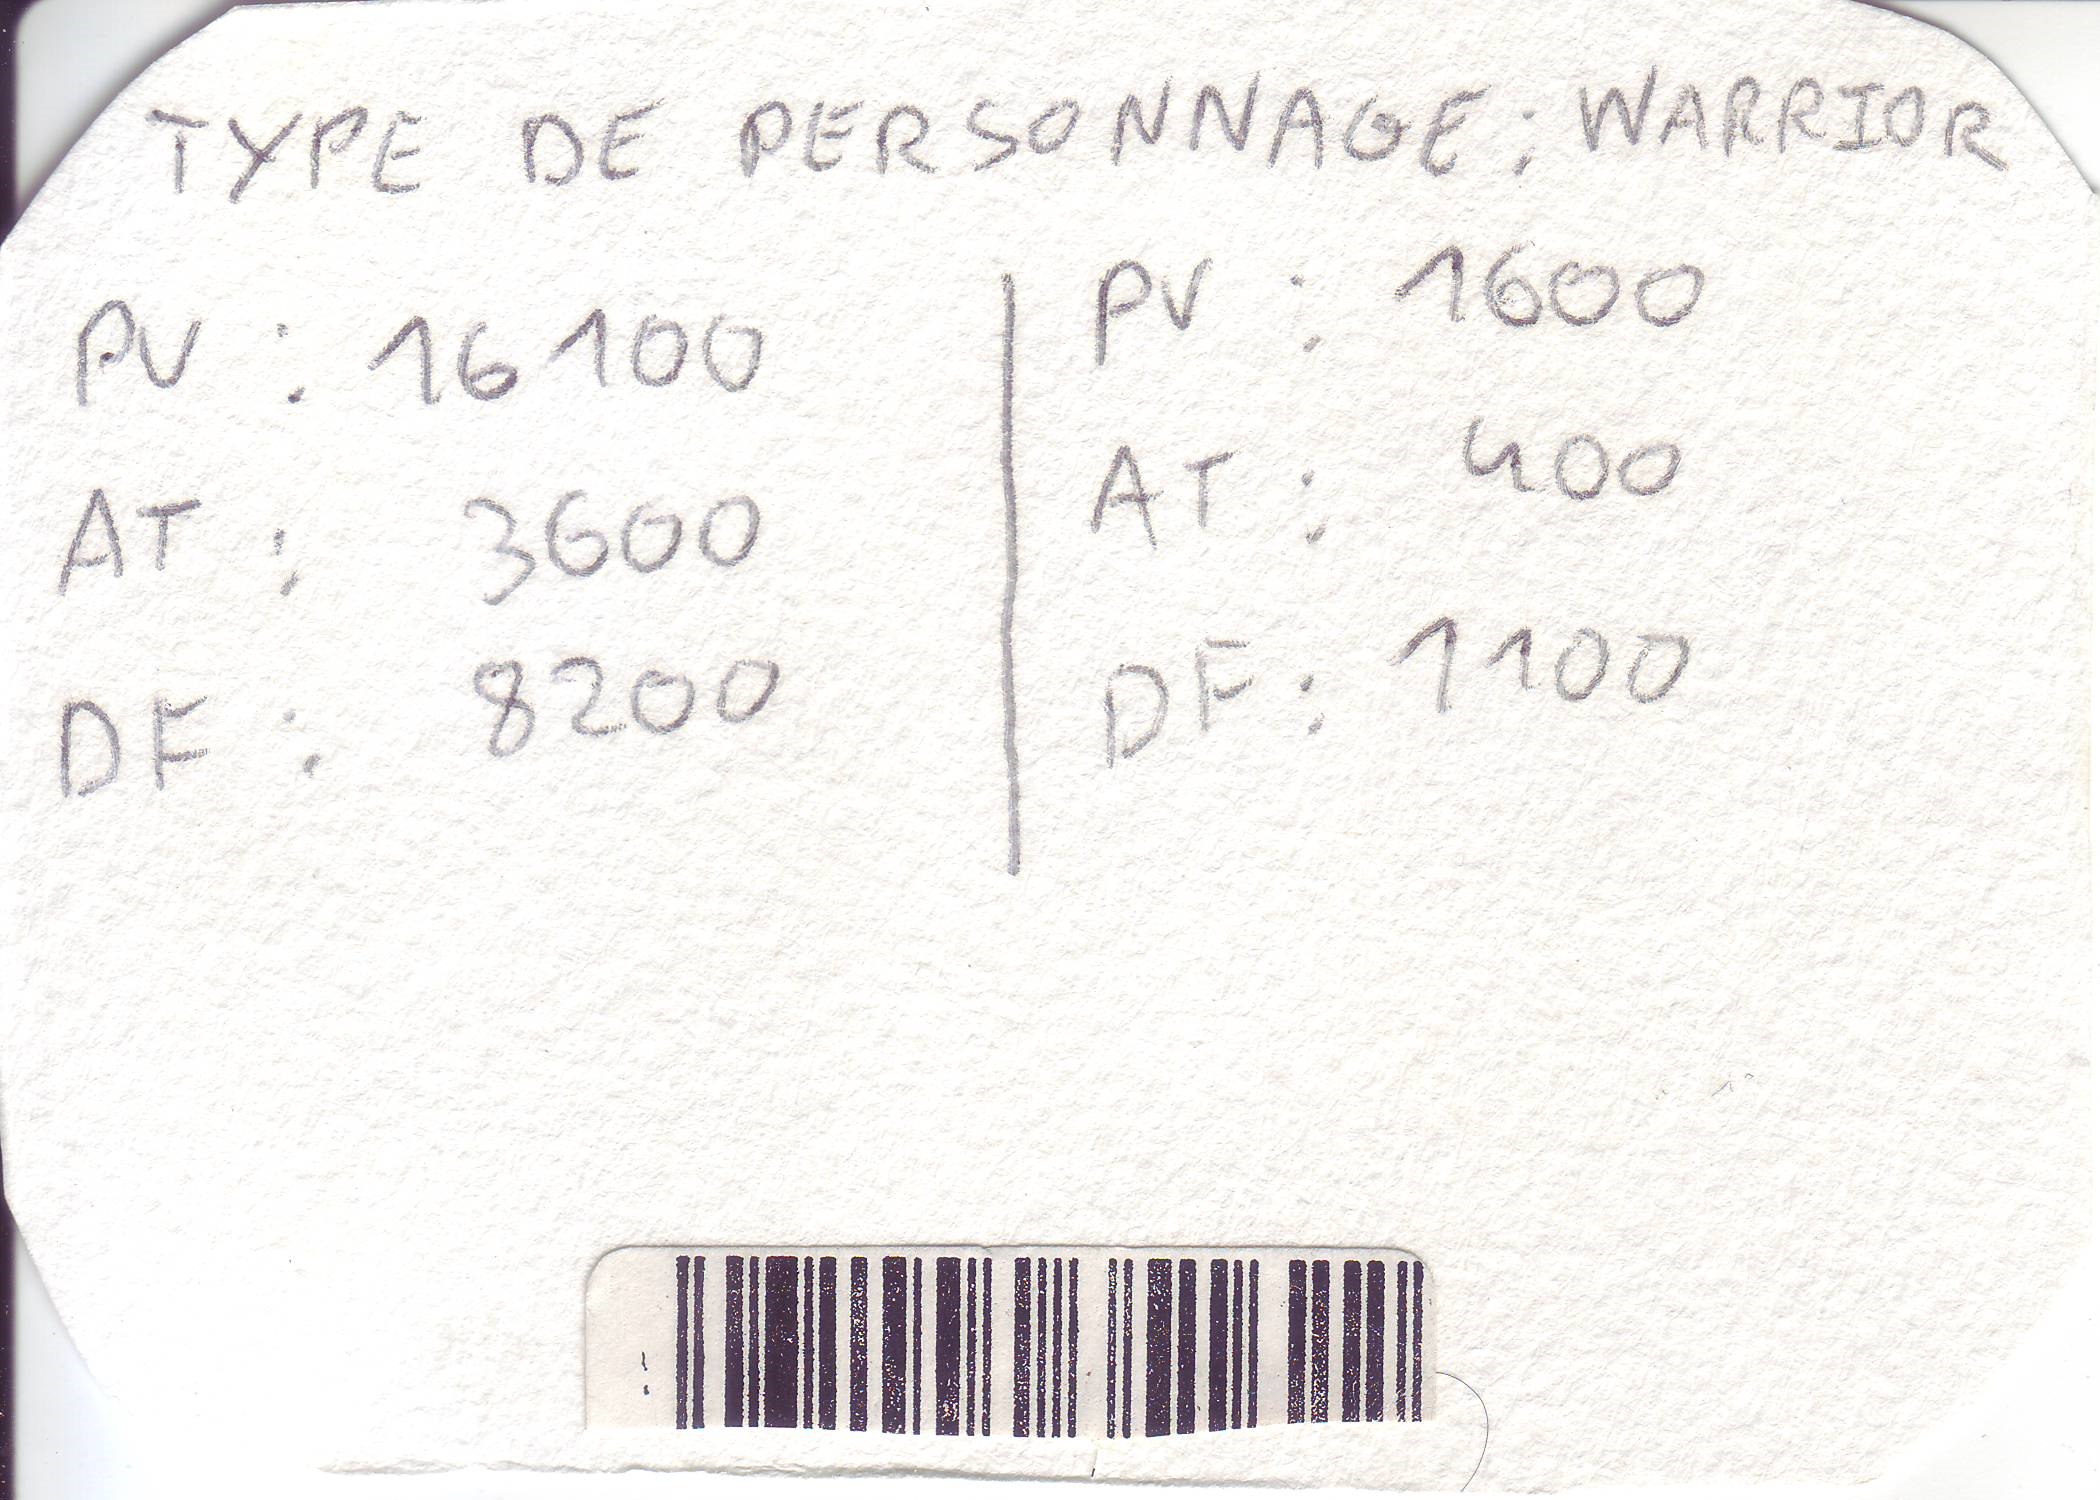 TYPE DE PERSONNAGE : WARRIOR
PV : 16100
AT : 3600
DF : 8200
PV : 1600
AT : 400
DF : 1100